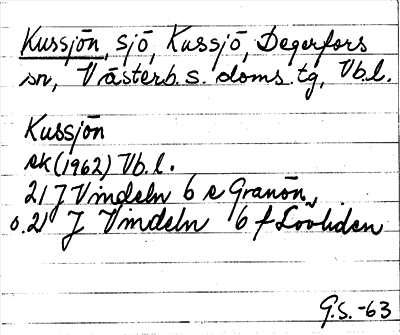 Kussjön, sjö, Kussjö, Degerfors
sn, Västerb. s. doms. tg, Vb.l.
Kussjön
ek (1962) Vb.l.
21 J Vindeln 6 e Granön
o. 21 J Vindeln 6 f Lövliden
G.S. -63